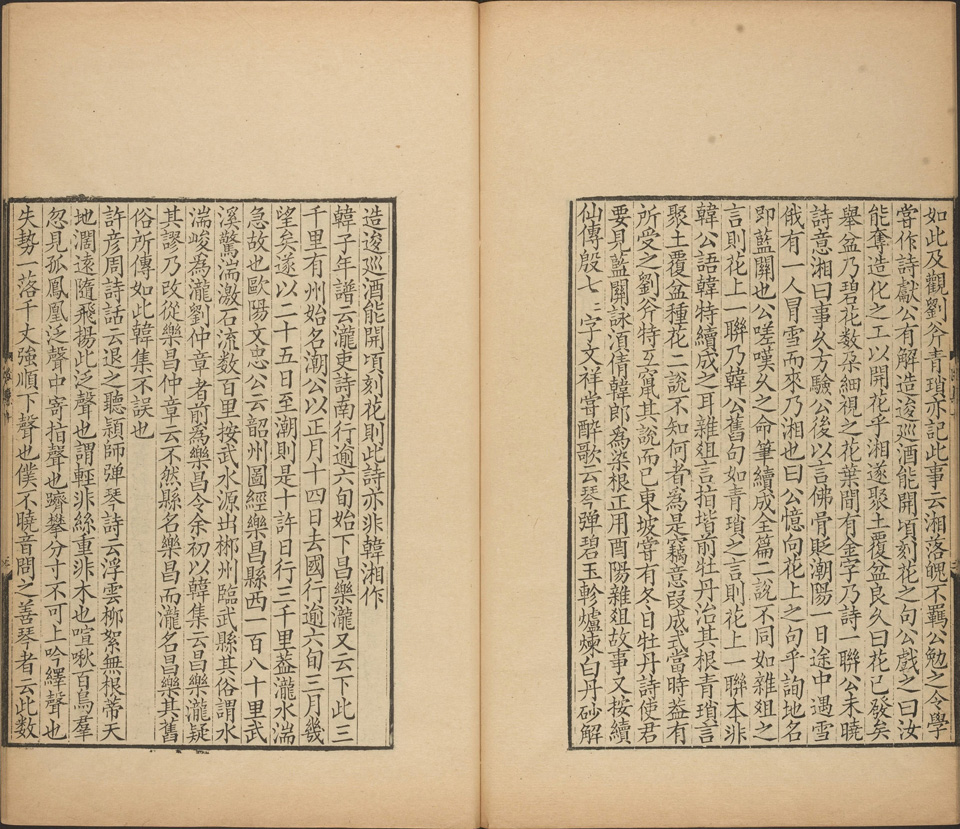 如此及觀劉斧青瑣亦記此事云湘落魄不羈公勉之令學
嘗作詩獻公有解造逡巡酒能開頃刻花之句公戲之曰汝
能奪造化之工以開花乎湘遂聚土覆盆良久曰花已發矣
舉盆乃碧花数朶細視之花葉間有金字乃詩一聯公未曉
詩意湘曰事久方驗公後以言佛骨貶潮陽一日途中遇雪
俄有一人冒雪而來乃湘也曰公憶向花上之句乎詢地名
即藍關也公嗟嘆久之命筆續成全篇二說不同如雜俎之
言則花上一聯乃韓公舊句如青瑣之言則花上一聯本非
韓公語韓特續成之耳雜俎言指堦前牡丹治其根青瑣言
聚土覆盆種花二說不知何者為是竊意叚成式當時葢有
所受之劉斧特互窜其說而已東坡嘗有冬日牡丹詩使君
要見藍關詠湏倩韓郎為染根正用酉陽雜俎故事又按續
仙傳殷七七字文祥嘗醉歌云琴弹碧玉軫爐煉白丹砂解
造逡巡酒能開頃刻花則此詩亦非韓湘作
韓子年譜云瀧吏詩南行逾六旬始下昌樂瀧又云下此三
千里有州始名潮公以正月十四日去國行逾六旬三月幾
望矣遂以二十五日至潮則是十許日行三千里葢瀧水湍
急故也歐陽文忠公云韶州圖經樂昌縣西一百八十里武
溪驚湍激石流数百里按武水源出郴州臨武縣其俗謂水
湍峻為瀧劉仲章者前為樂昌令余初以韓集云昌樂瀧疑
其謬乃改從樂昌仲章云不然縣名樂昌而瀧名昌樂其舊
俗所傳如此韓集不誤也
許彦周詩話云退之聽颖師弹琴詩云浮雲柳絮無根蒂天
地濶遠隨飛揚此泛聲也謂輕非絲重非木也喧啾百鳥羣
忽見孤鳳凰泛聲中寄指聲也躋攀分寸不可上吟繹聲也
失勢一落千丈強順下聲也僕不曉音問之善琴者云此数